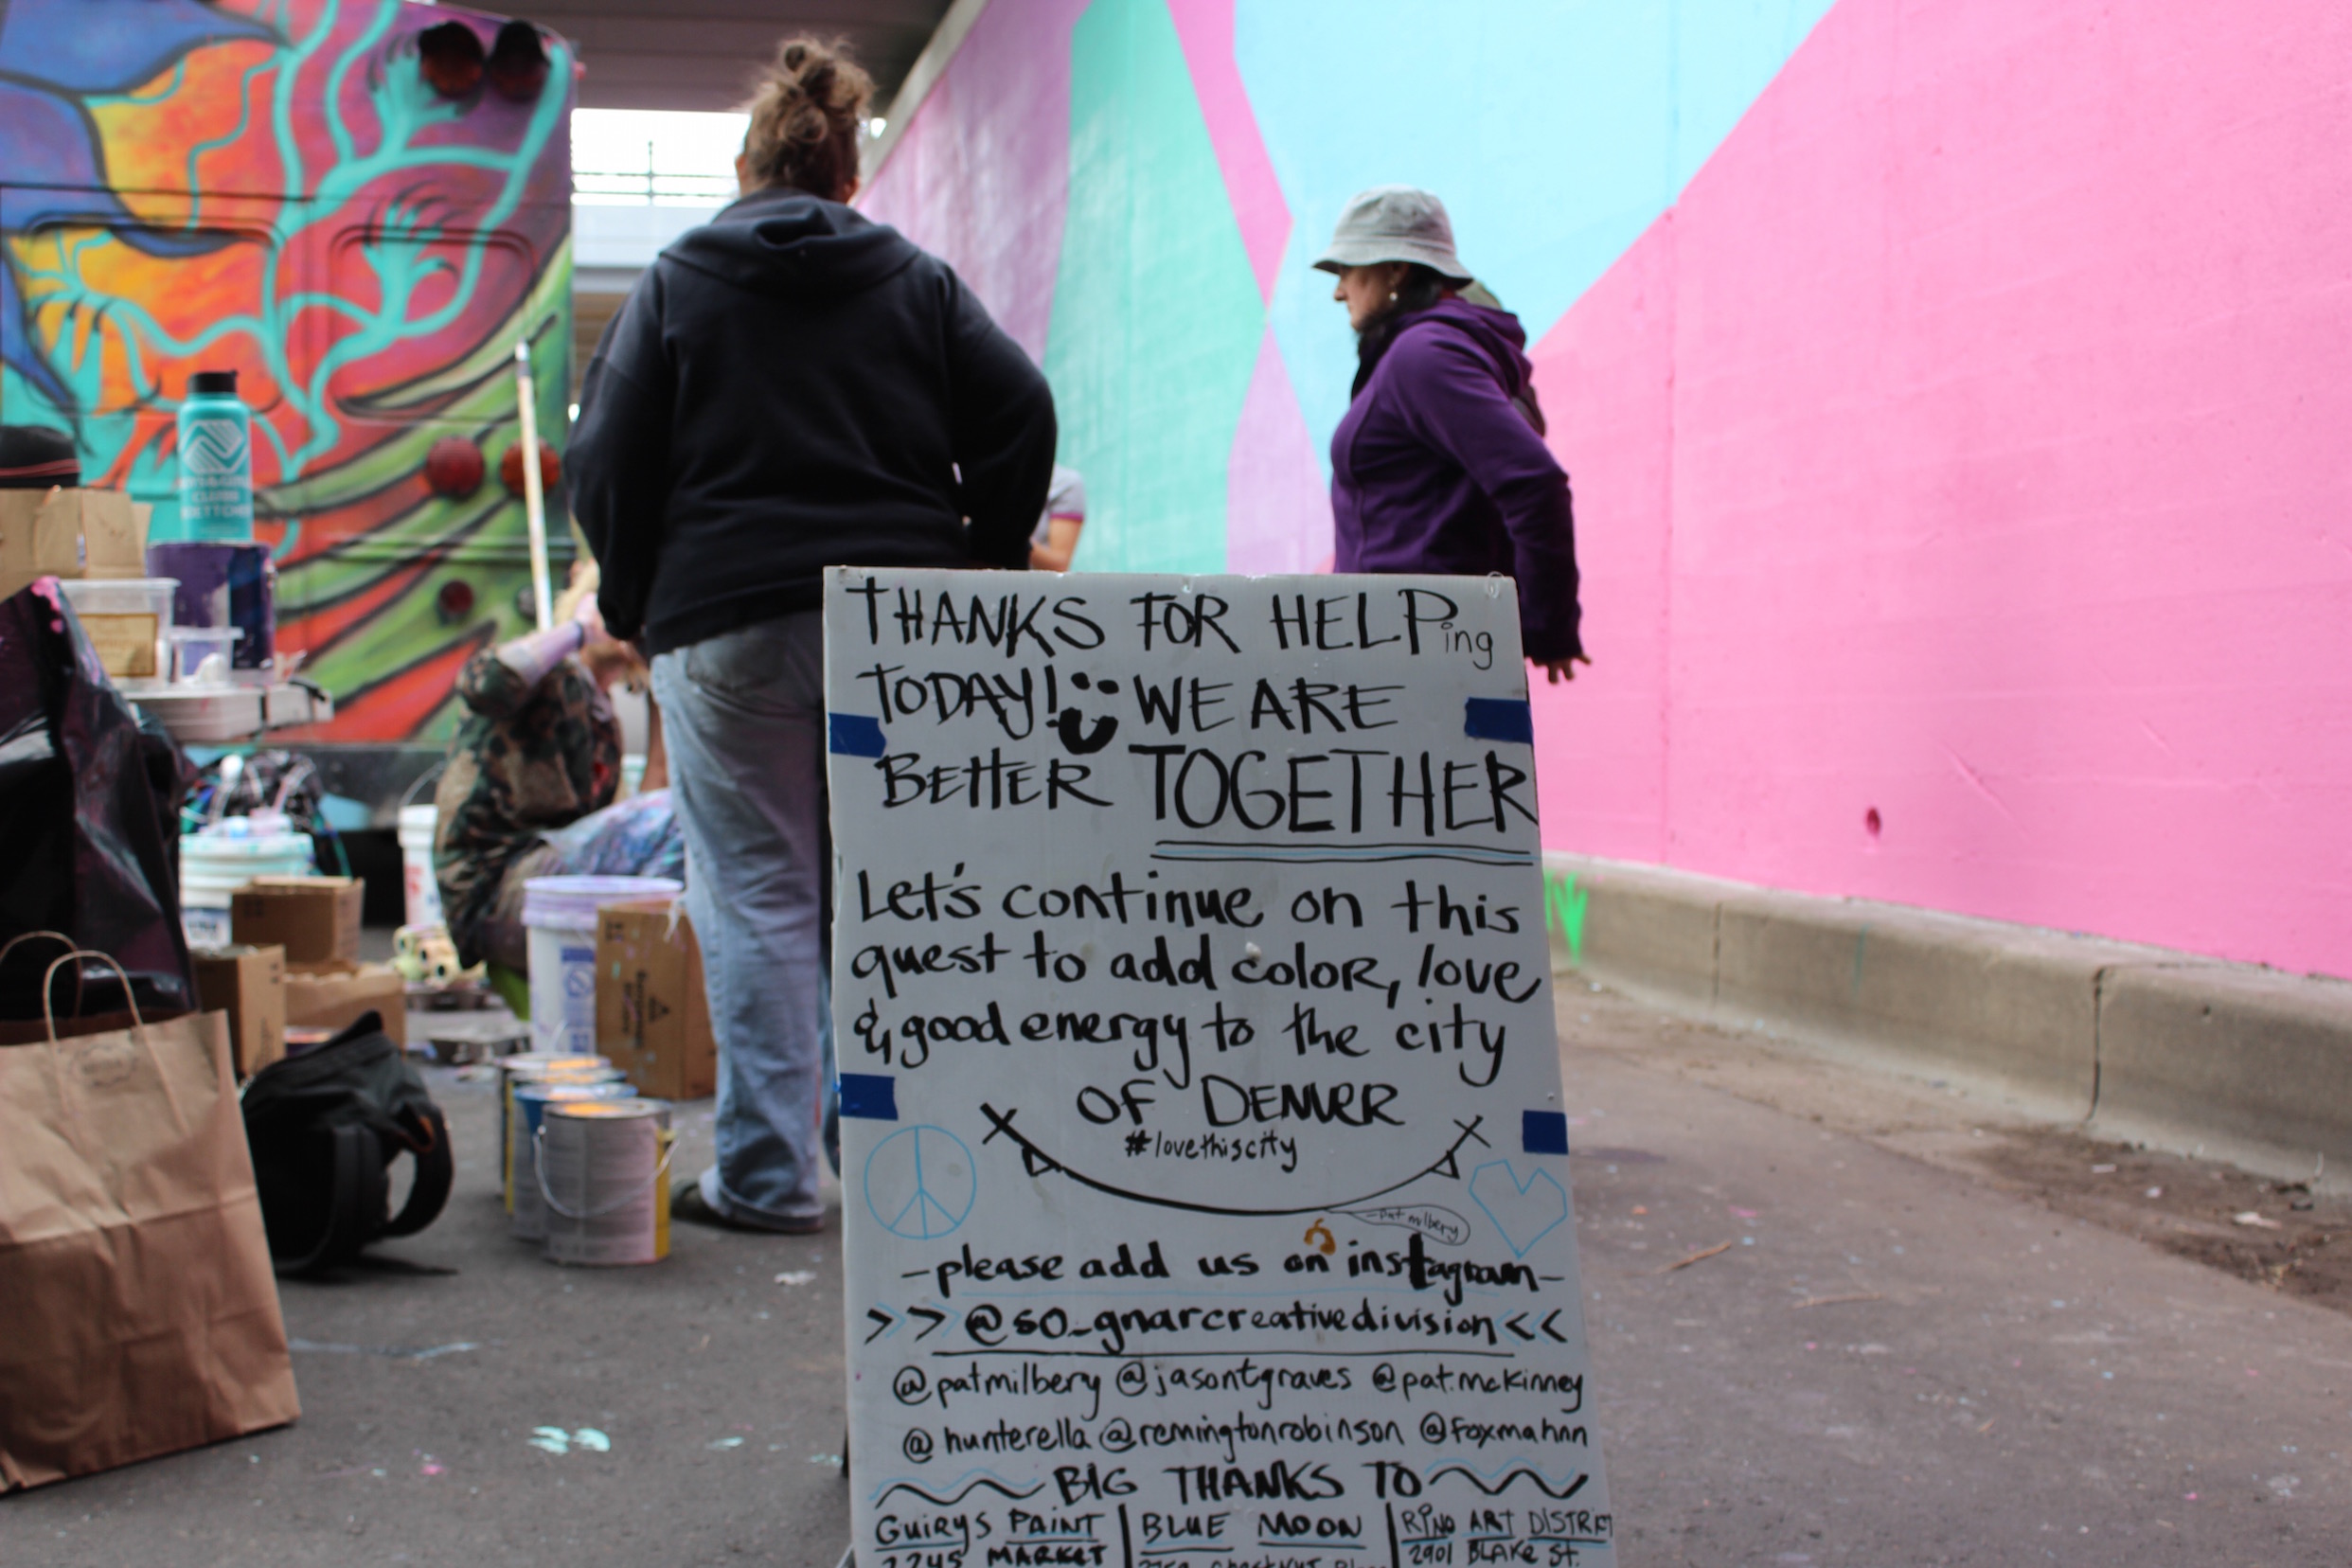 THANKS FOR HELPing
TODAY! WE ARE
BETTER TOGETHER
Let's continue on this
quest to add color, love
& good energy to the city
OF DENVER
#lovethiscity
-pat milbery
-please add us on instagram-
>> @so_gnarcreativedivision <<
@patmilbery @jasontgraves @pat.mckinney
@hunterella @remingtonrobinson @foxmahnn
BIG THANKS TO
GUIRYS PAINT | BLUE MOON | RINO ART DISTRICT
2245 MARKET 2901 BLAKE St.